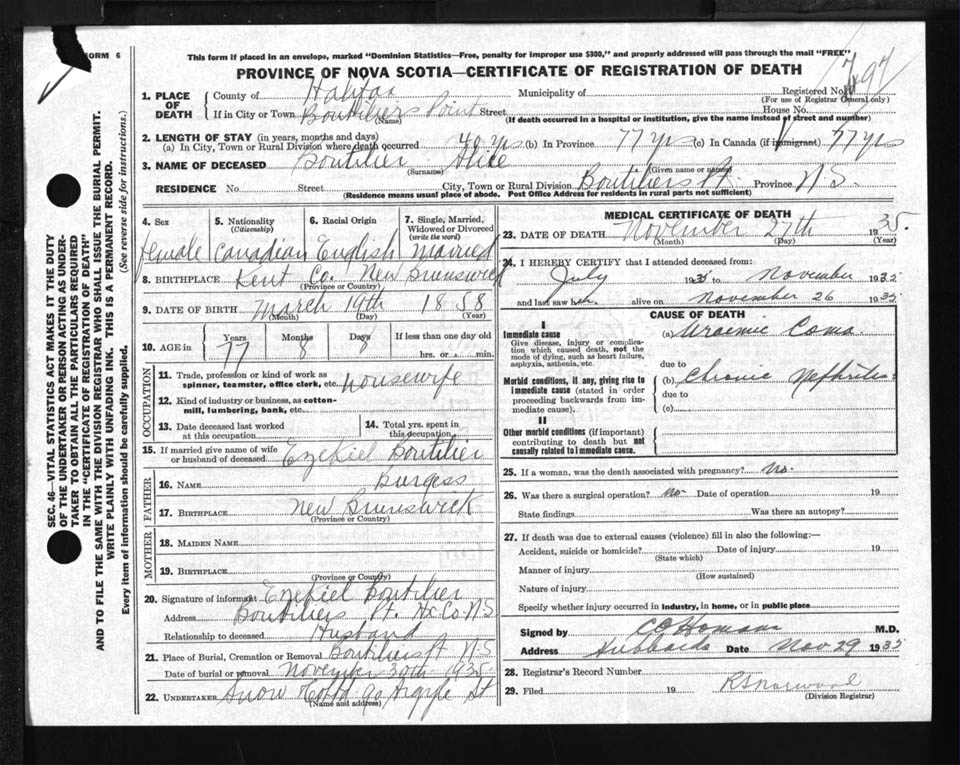 FORM 6
This form if placed in an envelope, marked "Dominion Statistics—Free, penalty for improper use $300," and properly addressed will pass through the mail "FREE"
PROVINCE OF NOVA SCOTIA—CERTIFICATE OF REGISTRATION OF DEATH
SEC. 46—VITAL STATISTICS ACT MAKES IT THE DUTY
OF THE UNDERTAKER OR PERSON ACTING AS UNDER-
TAKER TO OBTAIN ALL THE PARTICULARS REQUIRED
IN THE "CERTIFICATE OF REGISTRATION OF DEATH"
AND TO FILE THE SAME WITH THE DIVISION REGISTRAR WHO SHALL ISSUE THE BURIAL PERMIT.
WRITE PLAINLY WITH UNFADING INK. THIS IS A PERMANENT RECORD.
Every item of information should be carefully supplied. (See reverse side for instructions.)
1. PLACE OF DEATH County of Halifax Municipality of Registered No.
(For use of Registrar General only)
If in City or Town Boutiliers Point Street House No.
(Name) (If death occurred in a hospital or institution, give the name instead of street and number)
2. LENGTH OF STAY (in years, months and days)
(a) In City, Town or Rural Division where death occurred 40 yrs (b) In Province 77 yrs (c) In Canada (if immigrant) 77 yrs
3. NAME OF DECEASED Boutilier Alice
(Surname) (Given name or names)
RESIDENCE No. Street City, Town or Rural Division Boutiliers Pt. Province N.S.
(Residence means usual place of abode. Post Office Address for residents in rural parts not sufficient)
4. Sex 5. Nationality (Citizenship) 6. Racial Origin 7. Single, Married, Widowed or Divorced (write the word)
female Canadian English Married
8. BIRTHPLACE Kent Co. New Brunswick
(Province or Country)
9. DATE OF BIRTH March 19th 1858
(Month) (Day) (Year)
10. AGE in Years 77 Months 8 Days 8 If less than one day old hrs. or min.
OCCUPATION
11. Trade, profession or kind of work as spinner, teamster, office clerk, etc. housewife
12. Kind of industry or business, as cotton-mill, lumbering, bank, etc.
13. Date deceased last worked at this occupation 14. Total yrs. spent in this occupation
15. If married give name of wife or husband of deceased Ezekiel Boutilier
FATHER
16. NAME Burgess
17. BIRTHPLACE New Brunswick
(Province or Country)
MOTHER
18. MAIDEN NAME
19. BIRTHPLACE
(Province or Country)
20. Signature of informant Ezekiel Boutilier
Address Boutiliers Pt. Hx. Co. N.S
Relationship to deceased Husband
21. Place of Burial, Cremation or Removal Boutiliers Pt N.S
Date of burial or removal November 30th 1935
22. UNDERTAKER Snow 90 Argyle St
(Name and address)
MEDICAL CERTIFICATE OF DEATH
23. DATE OF DEATH November 27th 1935.
(Month) (Day) (Year)
24. I HEREBY CERTIFY that I attended deceased from:
July 1935 to November 1935
and last saw her alive on November 26 1935
CAUSE OF DEATH
I
Immediate cause
Give disease, injury or complication which caused death, not the mode of dying, such as heart failure, asphyxia, asthenia, etc.
(a) Uraemic Coma
due to
Morbid conditions, if any, giving rise to immediate cause (stated in order proceeding backwards from immediate cause).
(b) Chronic Nephritis
due to
(c)
II
Other morbid conditions (if important) contributing to death but not causally related to immediate cause.
25. If a woman, was the death associated with pregnancy? No.
26. Was there a surgical operation? No Date of operation 19
State findings Was there an autopsy?
27. If death was due to external causes (violence) fill in also the following:—
Accident, suicide or homicide? Date of injury 19
(State which)
Manner of injury
(How sustained)
Nature of injury
Specify whether injury occurred in industry, in home, or in public place
Signed by M.D.
Address Hubbards Date Nov 29 1935
28. Registrar's Record Number
29. Filed 19
(Division Registrar)